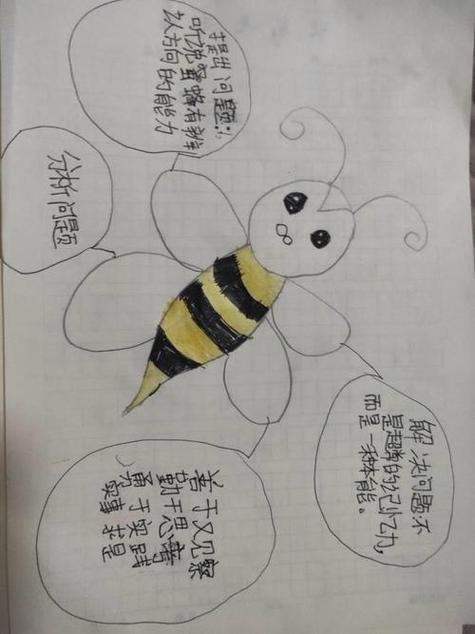 提出问题:
听说蜜蜂有辨
认方向的能力
分析问题
解决问题不
是超常的记忆力,
而是一种本能。
善于观察
勤于思考
勇于实践
实事求是